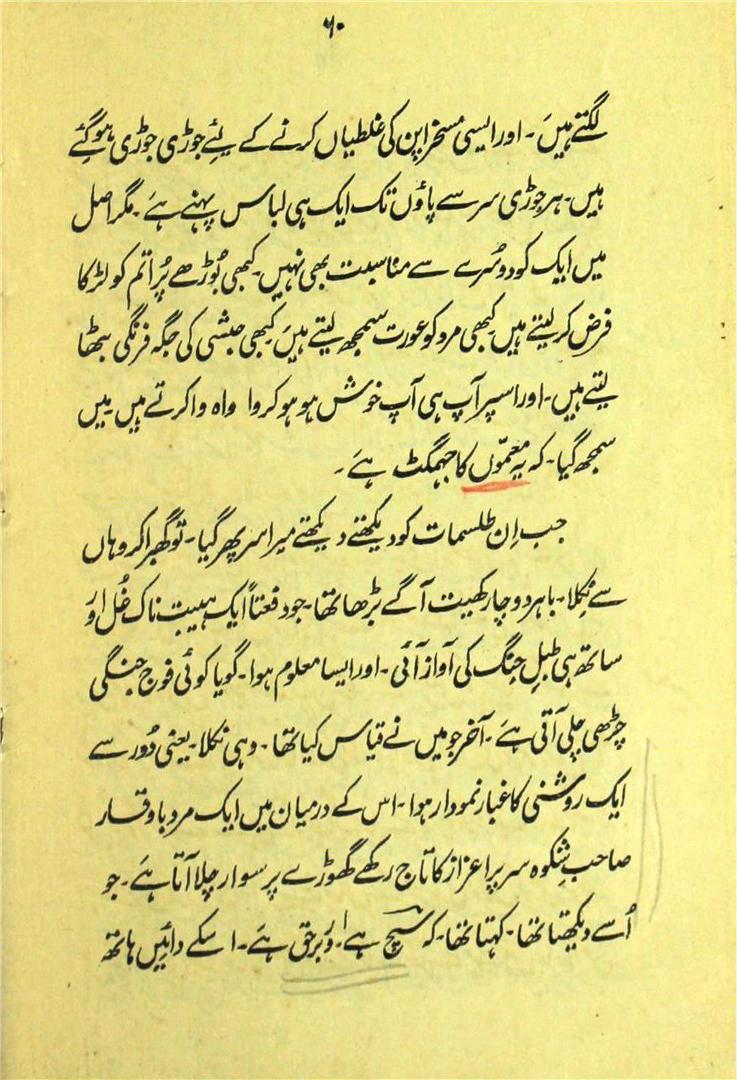 ۶۰
لگتے ہیں۔ اور ایسی مسخراپن کی غلطیاں کرنے کے لیئے جوڑی جوڑی ہوگئے
ہیں۔ ہر جوڑی سر سے پاؤں تک ایک ہی لباس پہنے ہے۔ مگر اصل
میں ایک کو دوسرے سے مناسبت بھی نہیں۔ کبھی بُوڑھے پُراتم کو لڑکا
فرض کرلیتے ہیں کبھی مرد کو عورت سمجھ لیتے ہیں کبھی حبشی کی جگہ فرنگی بٹھا
لیتے ہیں۔ اور اسپر آپ ہی آپ خوش ہو ہو کر وا واہ وا کرتے ہیں میں
سمجھ گیا۔ کہ یہ معمّوں کا جہمگٹ ہے۔
جب اِن طلسمات کو دیکھتے دیکھتے میرا سر پھر گیا۔ تو گھبرا کر وہاں
سے نِکلا۔ باہر دو چار کھیت آگے بڑھا تھا۔ جو دفعتاً ایک ہیبت ناک غُل اور
ساتھ ہی طبلِ جنگ کی آواز آئی۔ اور ایسا معلوم ہوا۔ گویا کوئی فوج جنگی
چڑھی چلی آتی ہے۔ آخر جو میں نے قیاس کیا تھا۔ وہی نکلا۔ یعنی دُور سے
ایک روشنی کا غبار نمودار ہوا۔ اس کے درمیان میں ایک مرد باوقار
صاحب شِکوہ سر پر اعزاز کا تاج رکھے گھوڑے پر سوار چلا آتا ہے۔ جو
اُسے دیکھتا تھا۔ کہتا تھا۔ کہ سچ ہے۔ اور برحق ہے۔ اسکے دائیں ہاتھ